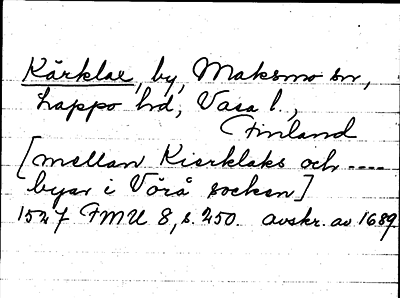 Kärklae, by, Maksmo sn,
Lappo hd, Vasa l.,
Finland
[mellan Kierklaks och ----
byar i Vörå socken]
1527 FMU 8, s. 250. avskr. av 1689